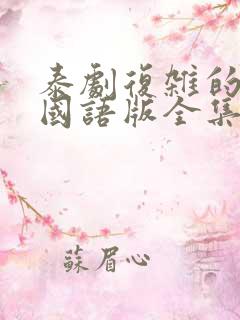 泰劇復雜的
國語版全集
蘇眉心